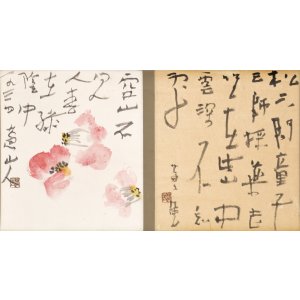 松下問童子
言師採藥去
只在此山中
雲深不知
處
空山不
見
人春
在綠
陰中
山人